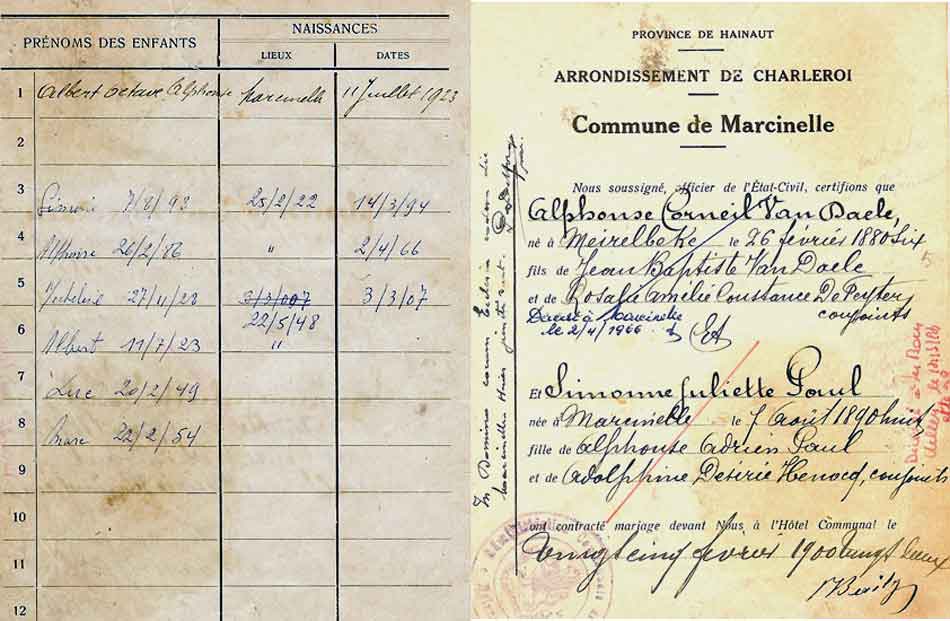 PRÉNOMS DES ENFANTS
NAISSANCES
LIEUX DATES
1 Albert Octave Alphonse Marcinelle 11 Juillet 1923
2
3 Simone 7/8/93 25/2/22 14/3/94
4 Alphonse 26/2/86 " 2/4/66
5 27/11/23 3/3/007 3/3/07
22/5/48
6 Albert 11/7/23 "
7 Luc 20/2/49
8 Marc 22/2/54
9
10
11
12
PROVINCE DE HAINAUT
ARRONDISSEMENT DE CHARLEROI
Commune de Marcinelle
Nous soussigné, officier de l'État-Civil, certifions que
Alphonse Corneil Van Daele,
né à Meirelbeke le 26 février 1880 six
fils de Jean Baptiste Van Daele
et de Rosalie Amélie Constance De Peyter,
conjoints
Décédé à Marcinelle
le 2/4/1966
Et
Et Simonne Juliette Paul
née à Marcinelle le 7 Août 1890
fille de Alphonse Adrien Paul
et de Adolphine Désirée Henocq, conjoints
ont contracté mariage devant Nous à l'Hôtel Communal le
Vingt cinq février 1900 vingt deux